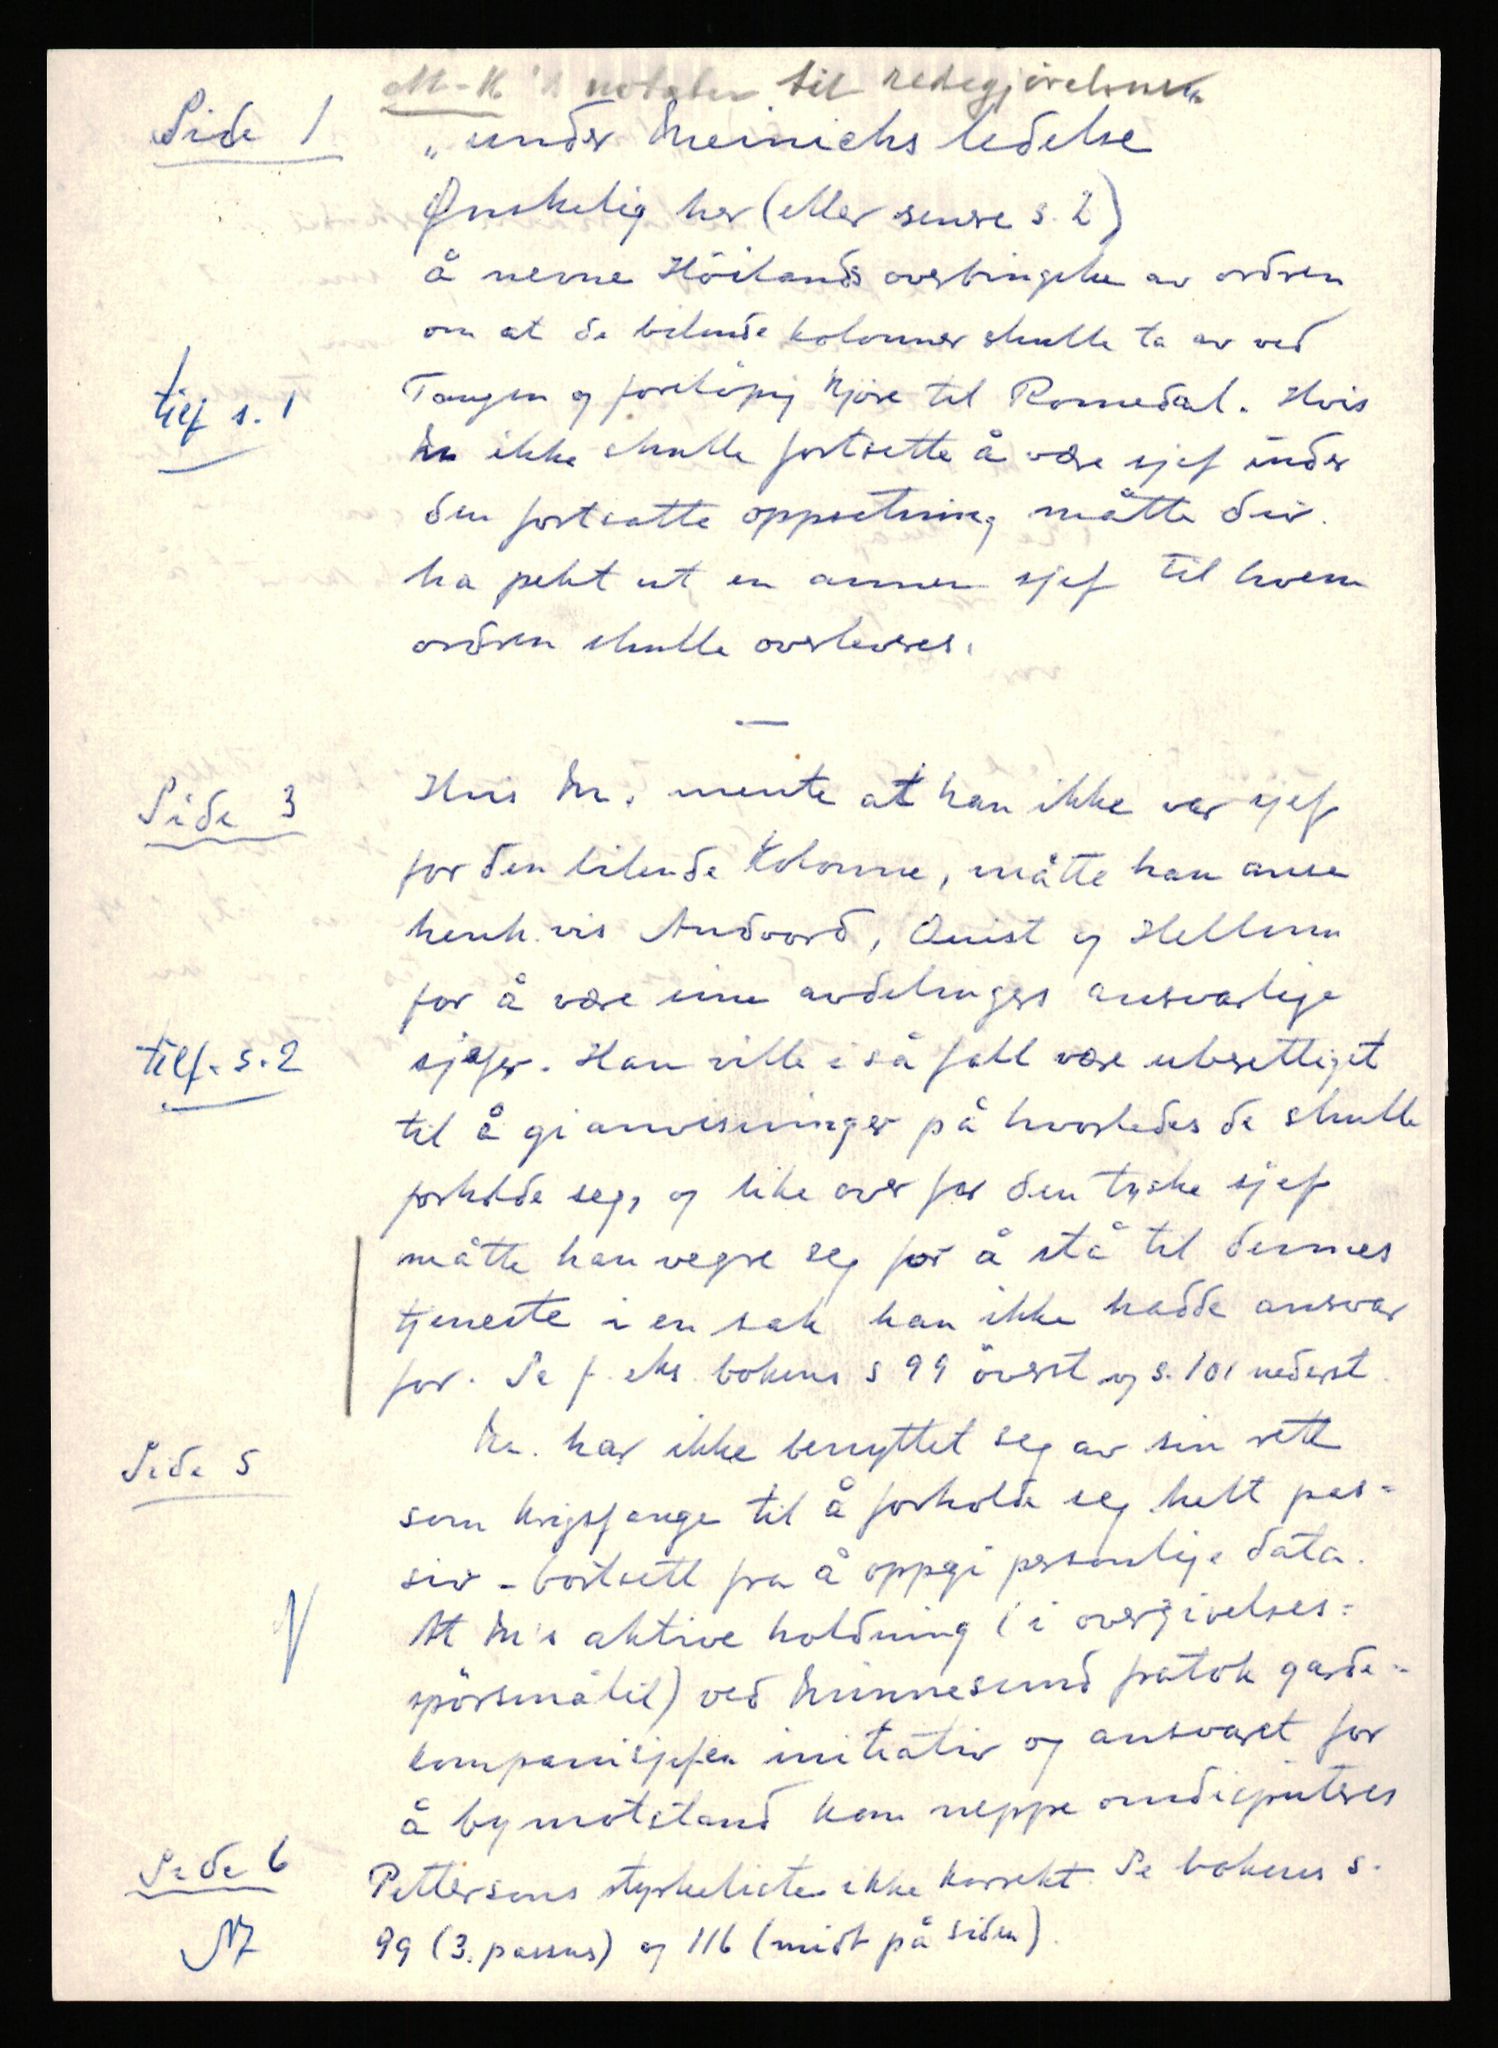 M-K's notater til redegjørelsen
Side 1 „under Meinichs ledelse
Ønskelig her (eller senere s. 2)
å nevne Höilands overbringelse av ordren
om at de bilende kolonner skulle ta av ved
tilf s. 1 Tangen og foreløpig kjøre til Romedal. Hvis
M ikke skulle fortsette å være sjef under
den fortsatte oppsetning måtte div.
ha pekt ut en annen sjef til hvem
ordren skulle overleveres.
—
Side 3 Hvis M. mente at han ikke var sjef
for den bilende kolonne, måtte han anse
henh.vis Andvord, Qvist og Hellum
for å være sine avdelingers ansvarlige
tilf. s. 2 sjefer. Han ville i så fall være uberettiget
til å gi anvisninger på hvorledes de skulle
forholde seg, og like over for den tyske sjef
måtte han vegre seg for å stå til dennes
tjeneste i en sak han ikke hadde ansvar
for. Se f. eks. bokens s 99 överst og s. 101 nederst.
Side 5 M. har ikke benyttet seg av sin rett
som krigsfange til å forholde seg helt pas-
siv - bortsett fra å oppgi personlige data.
At M's aktive holdning (i overgivelses-
spörsmålet) ved Minnesund fratok garde-
kompanisjefen initiativ og ansvaret for
å by motstand kan neppe omdisputeres
Side 6 Pettersens styrkelister ikke korrekt. Se bokens s.
99 (3. passus) og 116 (midt på siden).